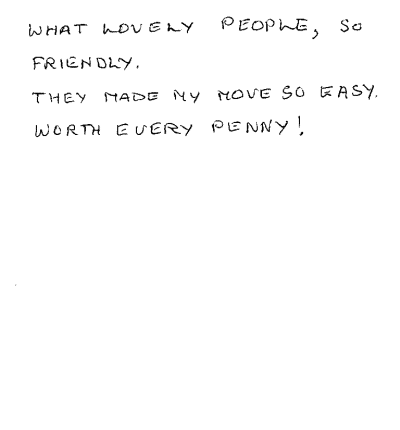 WHAT LOVELY PEOPLE, SO
FRIENDLY.
THEY MADE MY MOVE SO EASY.
WORTH EVERY PENNY!